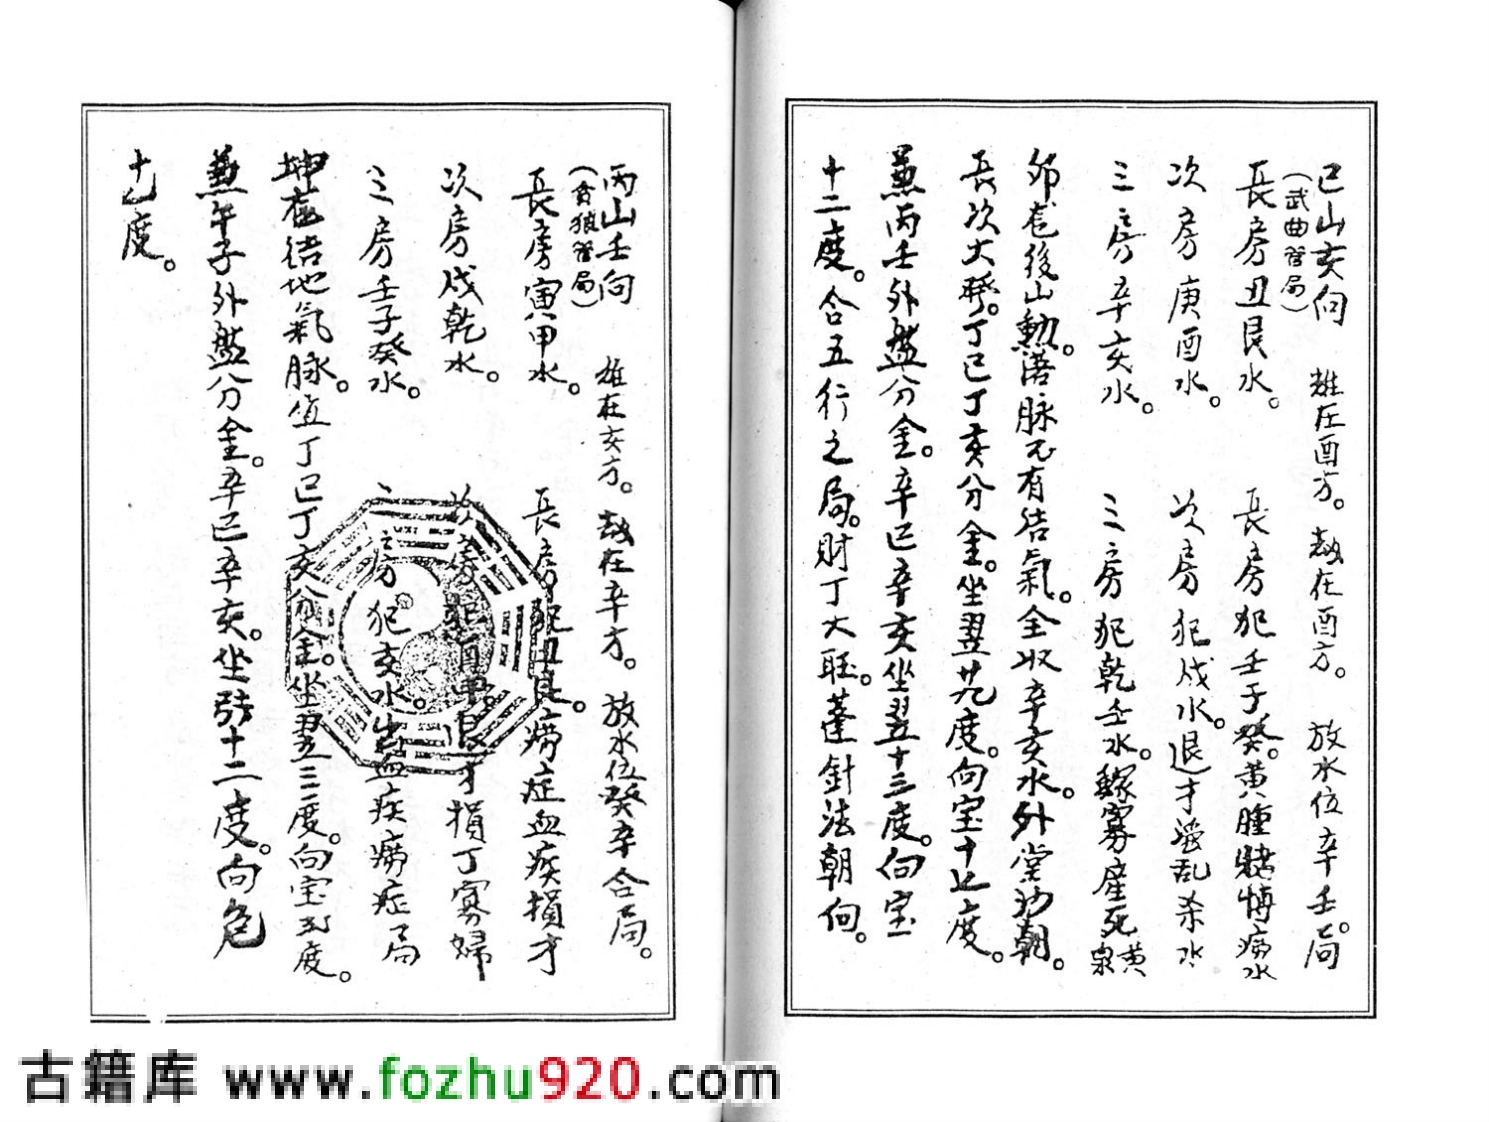 巳山亥向　雄在酉方。劫在酉方。　放水位辛壬。局
（武曲管局）
長房丑艮水。　長房犯壬子癸。黄腫　痨水
次房庚酉水。　次房犯戍水。退才淫乱杀水
三房辛亥水。　三房犯乾壬水。鰥寡産死黄泉
後山　落脉　有结氣。全收辛亥水。外堂　朝。
長次大發。丁巳丁亥分金。坐翌九度。向室十　度。
兼丙壬外盤分金。辛巳辛亥坐翌十三度。向室
十二度。合五行之局。財丁大旺。蓬針法朝向。
丙山壬向　雄在亥方。劫在辛方。放水位癸辛合局。
（貪狼管局）
長房寅甲水。　長房犯丑艮。痨症血疾損才
次房戍乾水。　次房犯　才損丁寡婦
三房壬子癸水。　三房犯亥水。出血疾痨症局
坤　结地氣脉。　丁巳丁亥分金。坐翌三度。向室　度。
兼午子外盤分金。辛巳辛亥。坐張十二度。向危
十　度。
古籍库 www.fozhu920.com